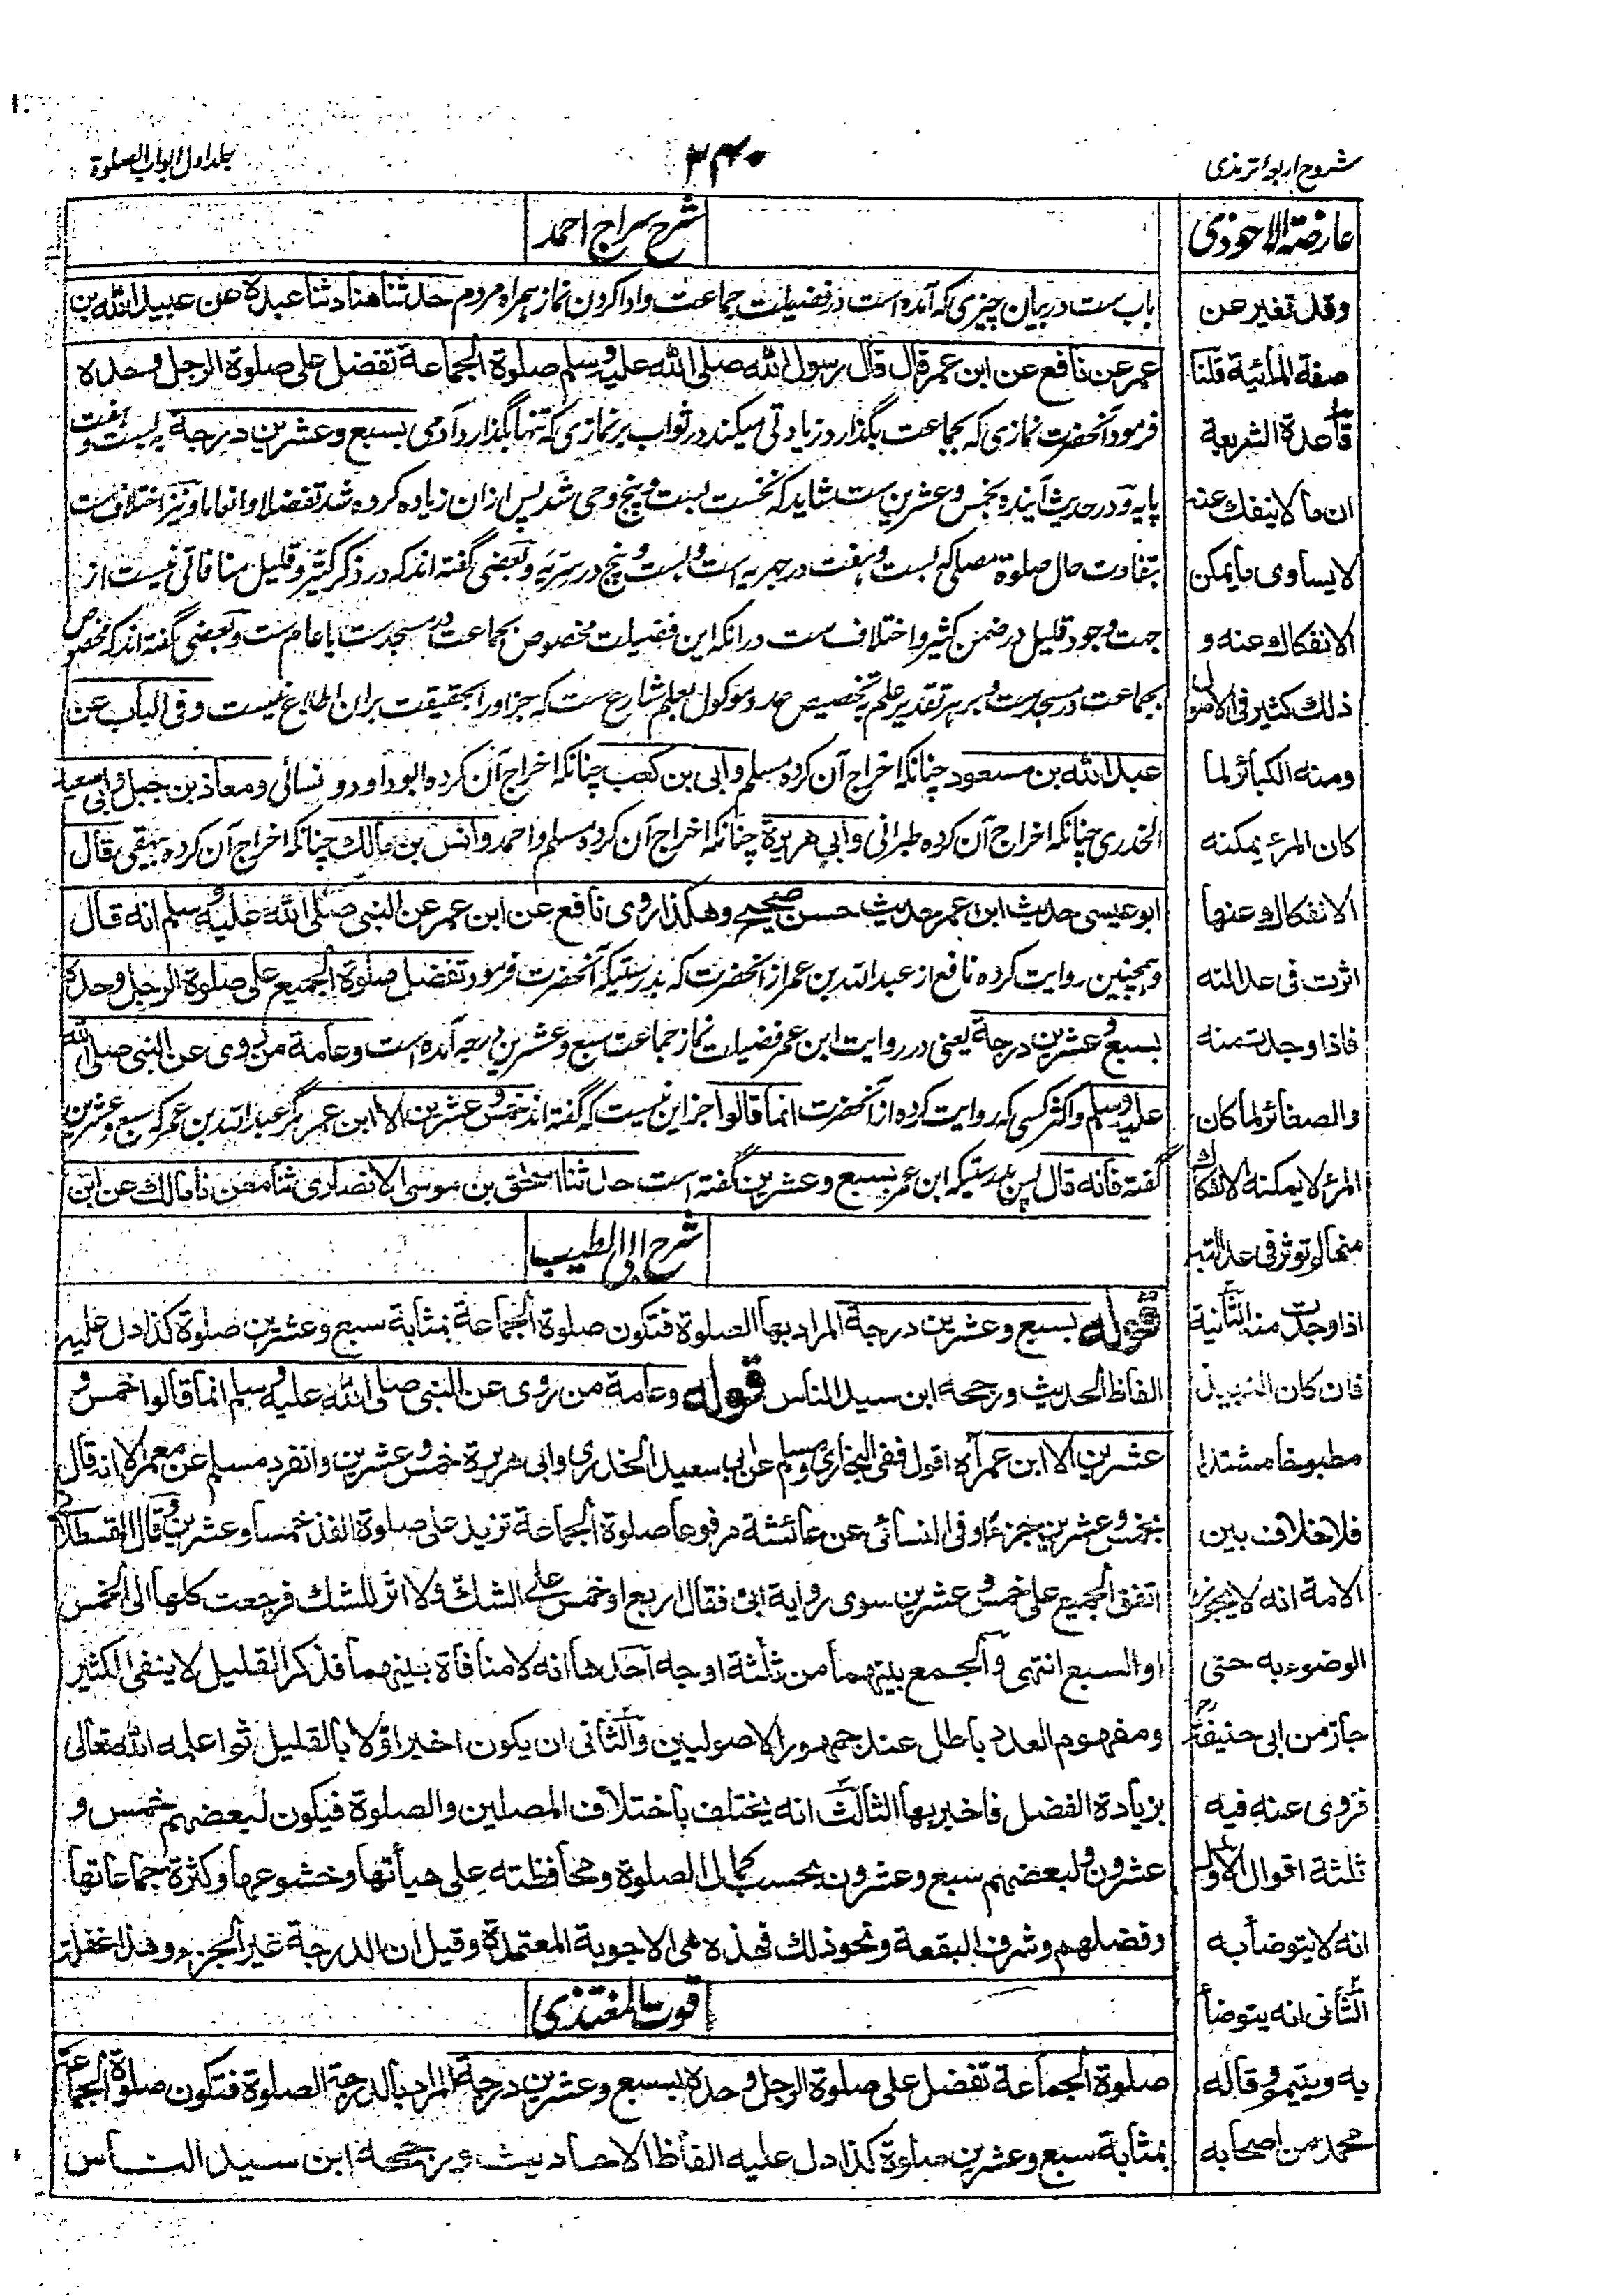 شروح اربعه ترمذی
۳۴۰
جلد اول ابواب الصلوة
عارضة الاحوذی
وقد تغیر عن
صفة المائیة قلنا
قاعدة الشریعة
ان ما لا ینفك عنه
لا یساوی ما یمکن
الانفکاك عنه و
ذلك کثیر فی الاصول
ومنه الکبائر لما
کان المرء یمکنه
الانفکاك عنها
اثرت فی عدالته
فاذا وجدت منه
والصغائر لما کان
المرء لا یمکنه الانفکاك
منها لم توثر فی عدالته
اذا وجدت منه الثانیة
فان کان النبیذ
مطبوخا مشتدا
فلا خلاف بین
الامة انه لا یجوز
الوضوء به حتی
جاز من ابی حنیفة رح
فروی عنه فیه
ثلثة اقوال الاول
انه لا یتوضأ به
الثانی انه یتوضأ
به ویتیمم وقاله
محمد من اصحابه
شرح سراج احمد
باب ست در بیان چیزی که آمده است در فضیلت جماعت وادا کردن نماز همراه مردم حدثنا هناد ثنا عبدة عن عبید الله بن
عمر عن نافع عن ابن عمر قال قال رسول الله صلی الله علیه وسلم صلوة الجماعة تفضل علی صلوة الرجل وحده
فرمود آنحضرت نمازی که بجماعت بگذارد زیادتی میکند در ثواب بر نمازی که تنها بگذارد آدمی بسبع وعشرین درجة به بست و هفت
پایه و در حدیث آینده بخمس وعشرین ست شاید که نخست بست و پنج وحی شد پس ازان زیاده کرده شد تفضلا وانعاما و نیز اختلاف ست
بتفاوت حال صلوة مصلی که بست و هفت در جهریه است و بست و پنج در سریه و بعضی گفته اند که در ذکر کثیر وقلیل منافاتی نیست از
جهت وجود قلیل در ضمن کثیر و اختلاف ست در آنکه این فضیلت مخصوص بجماعت در مسجد ست یا عام ست و بعضی گفته اند که مخصوص
بجماعت در مسجد ست و بر هر تقدیر علم به تخصیص عدد موکول بعلم شارع ست که جز اورا بحقیقت بران اطلاع نیست وفی الباب عن
عبد الله بن مسعود چنانکه اخراج آن کرده مسلم وابی بن کعب چنانکه اخراج آن کرده ابو داود و نسائی ومعاذ بن جبل وابی سعید
الخدری چنانکه اخراج آن کرده طبرانی وابی هریرة چنانکه اخراج آن کرده مسلم و احمد وانس بن مالك چنانکه اخراج آن کرده بیهقی قال
ابو عیسی حدیث ابن عمر حدیث حسن صحیح وهکذا روی نافع عن ابن عمر عن النبی صلی الله علیه وسلم انه قال
و همچنین روایت کرده نافع از عبد الله بن عمر از آنحضرت که بدرستیکه آنحضرت فرمود تفضل صلوة الجمیع علی صلوة الرجل وحده
بسبع وعشرین درجة یعنی در روایت ابن عمر فضیلت نماز جماعت سبع وعشرین درجه آمده است وعامة من روی عن النبی صلی الله
علیه وسلم و اکثر کسی که روایت کرده از آنحضرت انما قالوا جز این نیست که گفته اند خمس وعشرین الا ابن عمر مگر عبد الله بن عمر که سبع وعشرین
گفته فانه قال پس بدرستیکه ابن عمر بسبع وعشرین گفته است حدثنا اسحق بن موسی الانصاری ثنا معن نا مالك عن ابن
شرح ابی الطیب
قوله بسبع وعشرین درجة المراد بها الصلوة فتکون صلوة الجماعة بمثابة سبع وعشرین صلوة کذا دل علیه
الفاظ الحدیث ورجحه ابن سید الناس قوله وعامة من روی عن النبی صلی الله علیه وسلم انما قالوا خمس و
عشرین الا ابن عمر آه اقول ففی البخاری ومسلم عن ابی سعید الخدری وابی هریرة خمس وعشرین وانفرد مسلم عن معمر الا انه قال
بخمس وعشرین جزءا وفی النسائی عن عائشة مرفوعا صلوة الجماعة تزید علی صلوة الفذ خمسا وعشرین وقال القسطلانی
اتفق الجمیع علی خمس وعشرین سوی روایة ابی فقال اربع او خمس علی الشك ولا اثر للشك فرجعت کلها الی الخمس
او السبع انتهی والجمع بینهما من ثلثة اوجه احدها انه لا منافاة بینهما فذکر القلیل لا ینفی الکثیر
ومفهوم العدد باطل عند جمهور الاصولیین والثانی ان یکون اخبر اولا بالقلیل ثم اعلمه الله تعالی
بزیادة الفضل فاخبر بها الثالث انه یختلف باختلاف المصلین والصلوة فیکون لبعضهم خمس و
عشرون ولبعضهم سبع وعشرون بحسب کمال الصلوة ومحافظته علی هیأتها وخشوعها وکثرة جماعاتها
وفضلهم وشرف البقعة ونحو ذلك فهذه هی الاجوبة المعتمدة وقیل ان الدرجة غیر الجزء وهذا غفلة
قوت المغتذی
صلوة الجماعة تفضل علی صلوة الرجل وحده بسبع وعشرین درجة المراد بالدرجة الصلوة فتکون صلوة الجماعة
بمثابة سبع وعشرین صلوة کذا دل علیه الفاظ الاحادیث ورجحه ابن سید الناس